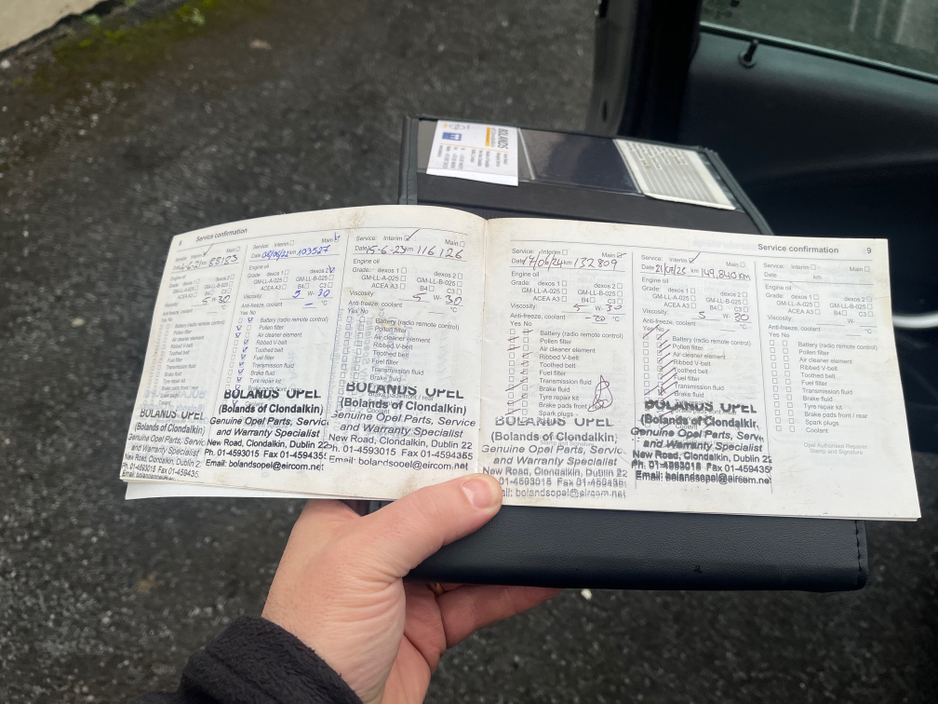 8 Service confirmation
Service: Interim ✓ Main
88123
5 W- 30
BOLANDS OPEL
(Bolands of Clondalkin)
Genuine Opel Parts, Servic
and Warranty Specialist
New Road, Clondalkin, Dublin 22
Ph. 01-4593015 Fax 01-459435
Email: bolandsopel@eircom
Service: Interim Main
km 103527
Engine oil
Grade: dexos 1 dexos 2
GM-LL-A-025 GM-LL-B-025
ACEA A3 B4 C3
Viscosity: 5 W- 30
Anti-freeze, coolant - °C
Yes No
Battery (radio remote control)
Pollen filter
Air cleaner element
Ribbed V-belt
Toothed belt
Fuel filter
Transmission fluid
Brake fluid
Tyre repair kit
BOLANDS OPEL
(Bolands of Clondalkin)
Genuine Opel Parts, Service
and Warranty Specialist
New Road, Clondalkin, Dublin 22
Ph. 01-4593015 Fax 01-4594355
Email: bolandsopel@eircom.net
Service: Interim ✓ Main
Date 15-6-23 km 116126
Engine oil
Grade: dexos 1 dexos 2
GM-LL-A-025 GM-LL-B-025
ACEA A3 B4 C3
Viscosity: 5 W- 30
Anti-freeze, coolant °C
Yes No
Battery (radio remote control)
Pollen filter
Air cleaner element
Ribbed V-belt
Toothed belt
Fuel filter
Transmission fluid
Brake fluid
BOLANDS OPEL
(Bolands of Clondalkin)
Genuine Opel Parts, Service
and Warranty Specialist
New Road, Clondalkin, Dublin 22
Ph. 01-4593015 Fax 01-4594355
Email: bolandsopel@eircom.net
Service confirmation 9
Service: Interim Main ✓
Date 17/06/24 km 132809
Engine oil
Grade: dexos 1 dexos 2
GM-LL-A-025 GM-LL-B-025
ACEA A3 B4 C3
Viscosity: 5 W- 30
Anti-freeze, coolant -20 °C
Yes No
Battery (radio remote control)
Pollen filter
Air cleaner element
Ribbed V-belt
Toothed belt
Fuel filter
Transmission fluid
Brake fluid
Tyre repair kit
Brake pads front
Spark plugs
BOLANDS OPEL
(Bolands of Clondalkin)
Genuine Opel Parts, Service
and Warranty Specialist
New Road, Clondalkin, Dublin 22
Service: Interim ✓ Main
km 149,840 KM
Engine oil
Grade: dexos 1 dexos 2
GM-LL-A-025 GM-LL-B-025
ACEA A3 B4 C3
Viscosity: 5 W- 30
Anti-freeze, coolant °C
Yes No
Battery (radio remote control)
Pollen filter
Air cleaner element
Ribbed V-belt
Toothed belt
Fuel filter
Transmission fluid
Brake fluid
Tyre repair kit
BOLANDS OPEL
(Bolands of Clondalkin)
Genuine Opel Parts, Servic
and Warranty Specialist
New Road, Clondalkin, Dublin 22
Ph. 01-4593015 Fax 01-4594355
Email: bolandsopel@eircom.net
Service: Interim Main
Date km
Engine oil
Grade: dexos 1 dexos 2
GM-LL-A-025 GM-LL-B-025
ACEA A3 B4 C3
Viscosity: W-
Anti-freeze, coolant °C
Yes No
Battery (radio remote control)
Pollen filter
Air cleaner element
Ribbed V-belt
Toothed belt
Fuel filter
Transmission fluid
Brake fluid
Tyre repair kit
Brake pads front / rear
Spark plugs
Coolant
Opel Authorised Repairer
Stamp and Signature
BOLANDS